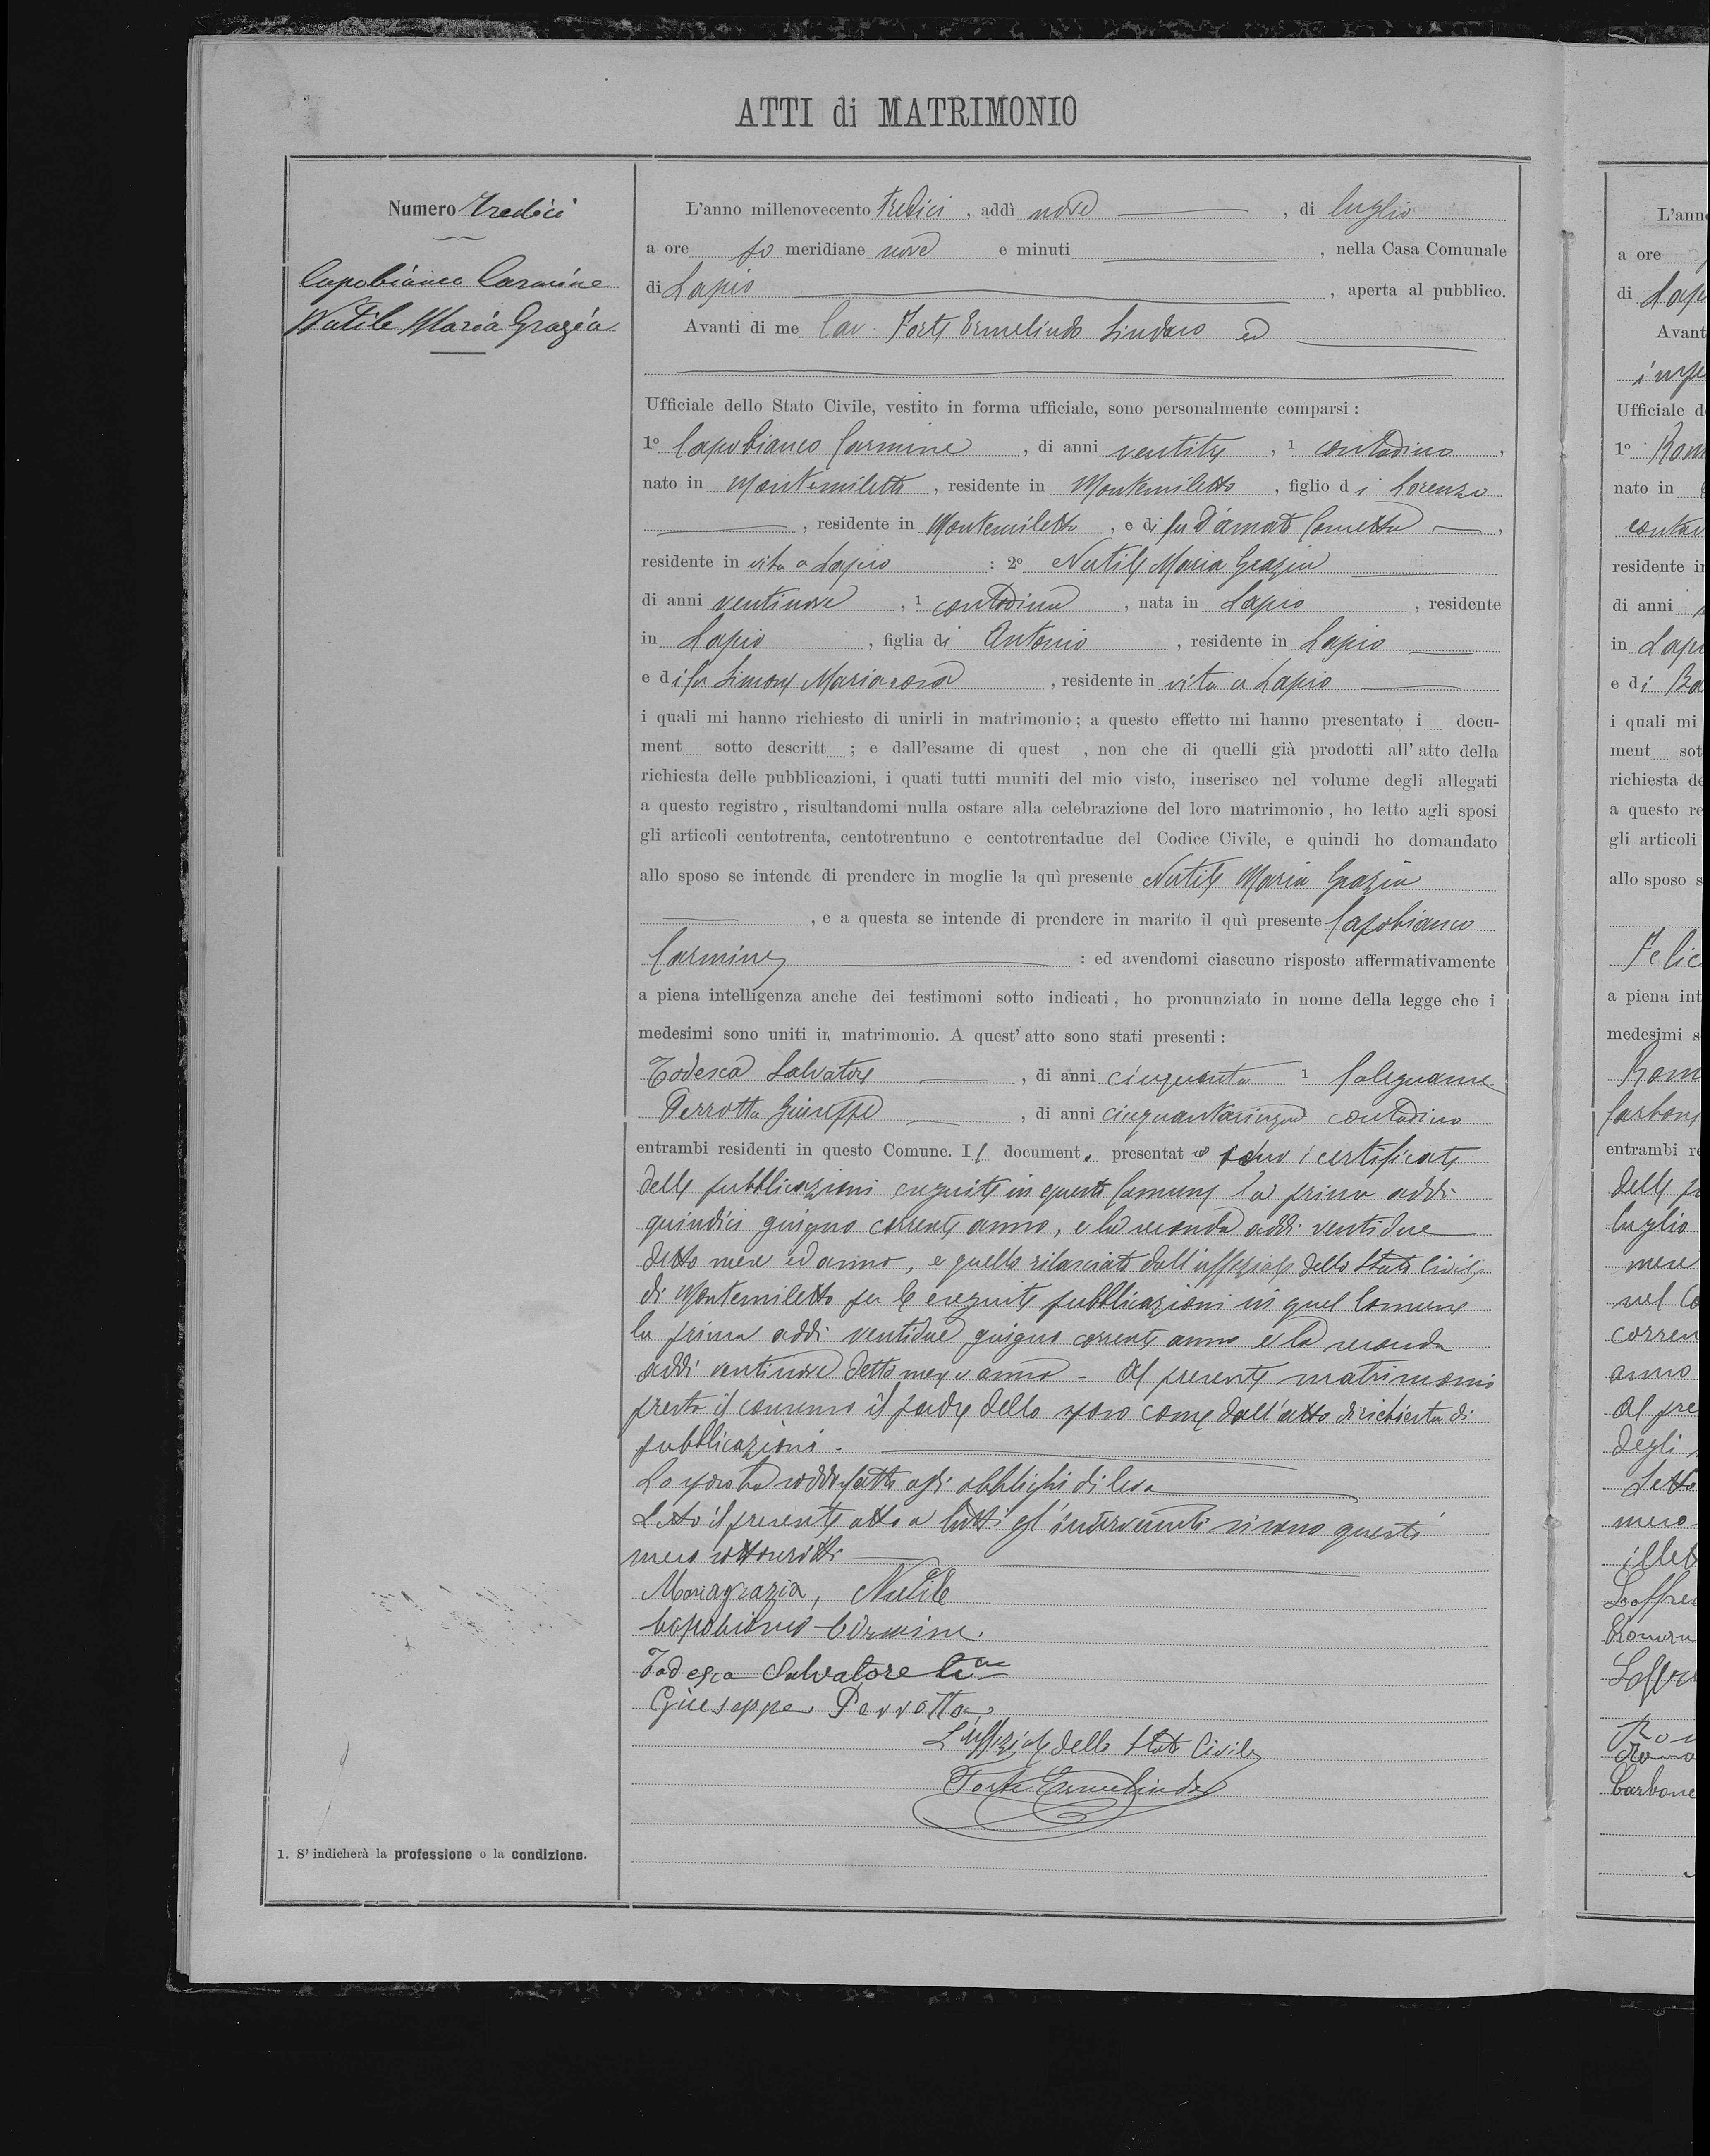 ATTI di MATRIMONIO
Numero Tredici
Capobianco Carmine
Nutile Maria Grazia
1. S' indicherà la professione o la condizione.
L'anno millenovecento tredici , addì nove , di luglio
a ore po meridiane nove e minuti , nella Casa Comunale
di Lapio , aperta al pubblico.
Avanti di me Cav. Forte Ermelindo Sindaco ed
Ufficiale dello Stato Civile, vestito in forma ufficiale, sono personalmente comparsi :
1º Capobianco Carmine , di anni ventitre , 1 contadino ,
nato in Montemiletto , residente in Montemiletto , figlio di Lorenzo
, residente in Montemiletto , e di fu D'amato ,
residente in vita a Lapio : 2º Nutile Maria Grazia
di anni ventinove , 1 contadina , nata in Lapio , residente
in Lapio , figlia di Antonio , residente in Lapio
e di fu Simone Mariarosa , residente in vita a Lapio
i quali mi hanno richiesto di unirli in matrimonio ; a questo effetto mi hanno presentato i docu-
ment sotto descritt ; e dall'esame di quest , non che di quelli già prodotti all' atto della
richiesta delle pubblicazioni, i quati tutti muniti del mio visto, inserisco nel volume degli allegati
a questo registro , risultandomi nulla ostare alla celebrazione del loro matrimonio , ho letto agli sposi
gli articoli centotrenta, centotrentuno e centotrentadue del Codice Civile, e quindi ho domandato
allo sposo se intende di prendere in moglie la quì presente Nutile Maria Grazia
, e a questa se intende di prendere in marito il quì presente Capobianco
Carmine : ed avendomi ciascuno risposto affermativamente
a piena intelligenza anche dei testimoni sotto indicati , ho pronunziato in nome della legge che i
medesimi sono uniti in matrimonio. A quest' atto sono stati presenti :
Todesca Salvatore , di anni cinquanta 1 falegname
Perrotta Giuseppe , di anni cinquantacinque contadino
entrambi residenti in questo Comune. I document presentat sono i certificati
delle pubblicazioni eseguite in questo Comune la prima addì
quindici giugno corrente anno, e la seconda addì ventidue
detto mese ed anno, e quello rilasciato dall'uffiziale dello Stato Civile
di Montemiletto per le eseguite pubblicazioni in quel Comune
la prima addì ventidue giugno corrente anno e la seconda
addì ventinove detto mese e anno - Al presente matrimonio
presta il consenso il padre dello sposo come dall'atto di richiesta di
pubblicazioni.
Lo sposo ha soddisfatto agli obblighi di leva
Letto il presente atto a tutti gl'intervenuti si sono questi
meco sottoscritti
Mariagrazia, Nutile
Capobianco Carmine.
Todesca Salvatore
Giuseppe Perrotta
L'uffiziale dello Stato Civile
Forte Ermelindo
L'anno
a ore
di Lap
Avant
Ufficiale d
1º Rom
nato in
contad
residente in
di anni
in Lapi
e di
i quali mi
ment sot
richiesta de
a questo re
gli articoli
allo sposo s
Felic
a piena int
medesimi s
Rom
Carbone
entrambi re
delle p
luglio
mese
nel Co
corren
anno
Al pre
degli
Letto
meco
Carbone